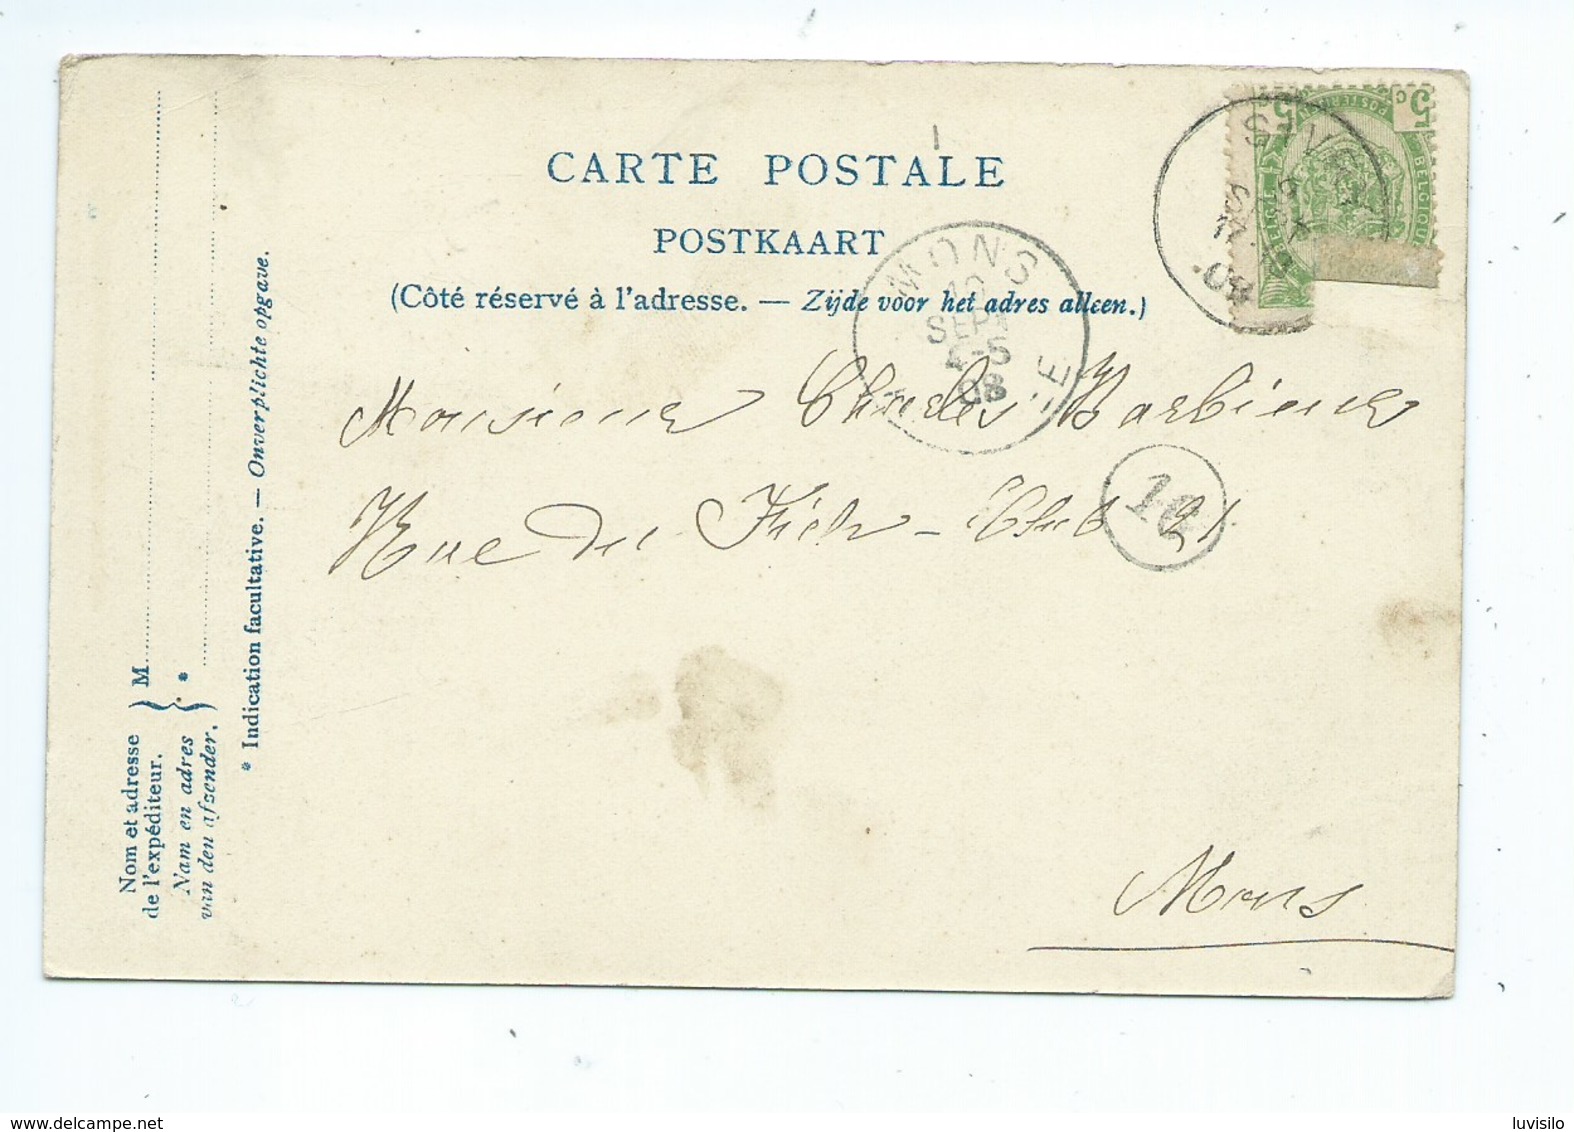 CARTE POSTALE
POSTKAART
(Côté réservé à l'adresse. — Zijde voor het adres alleen.)
MONS
10
SEPT
4-5
08
5 C
BELGIQUE
BELGIE
Monsieur Charles Barbieux
Rue du 21
16
Mons
Nom et adresse
de l'expéditeur.
Nam en adres
van den afsender.
M
*
* Indication facultative. — Onverplichte opgave.
www.delcampe.net
luvisilo